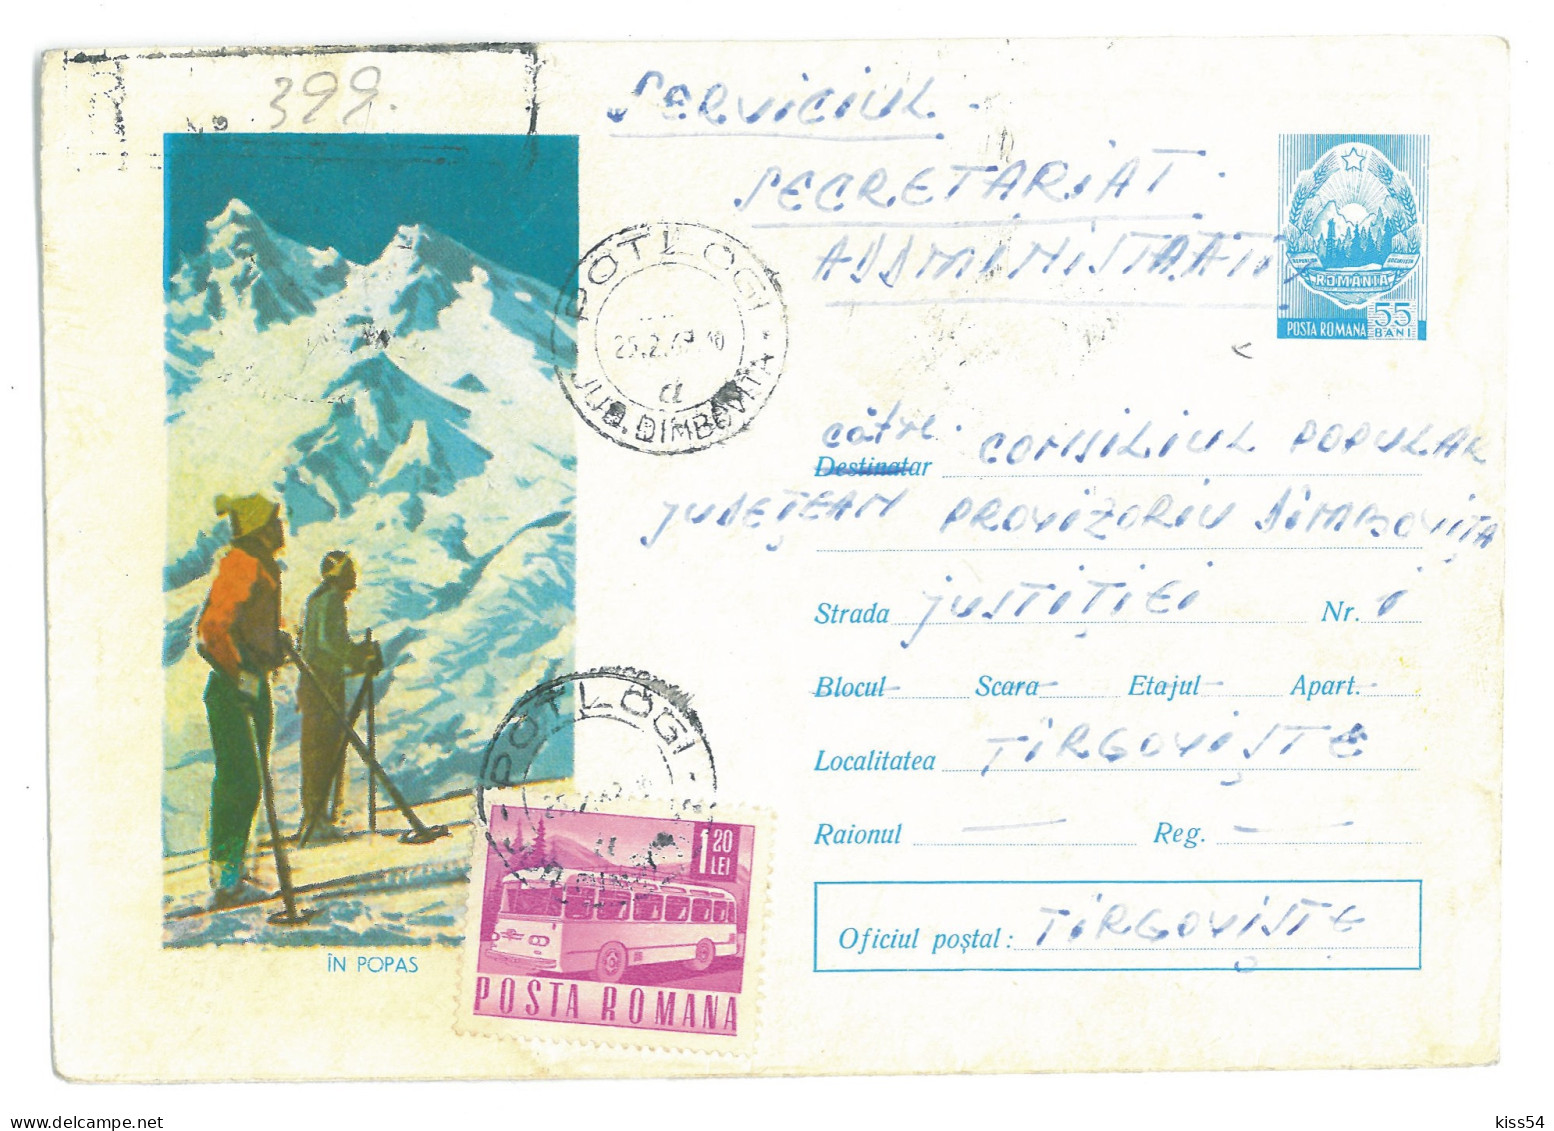 399.
SERVICIUL
SECRETARIAT
ADMINISTRATIV
ROMANIA
POSTA ROMANA 55 BANI
POTLOGI
25.2.
JUD. DIMBOVITA
către.
Destinatar CONSILIUL POPULAR
JUDEȚEAN PROVIZORIU DÎMBOVIȚA
Strada JUSTIȚIEI Nr. 1
Blocul Scara Etajul Apart.
Localitatea TÎRGOVIȘTE
Raionul Reg.
Oficiul poștal: TÎRGOVIȘTE
POTLOGI
1 20 LEI
POSTA ROMANA
ÎN POPAS
kiss54